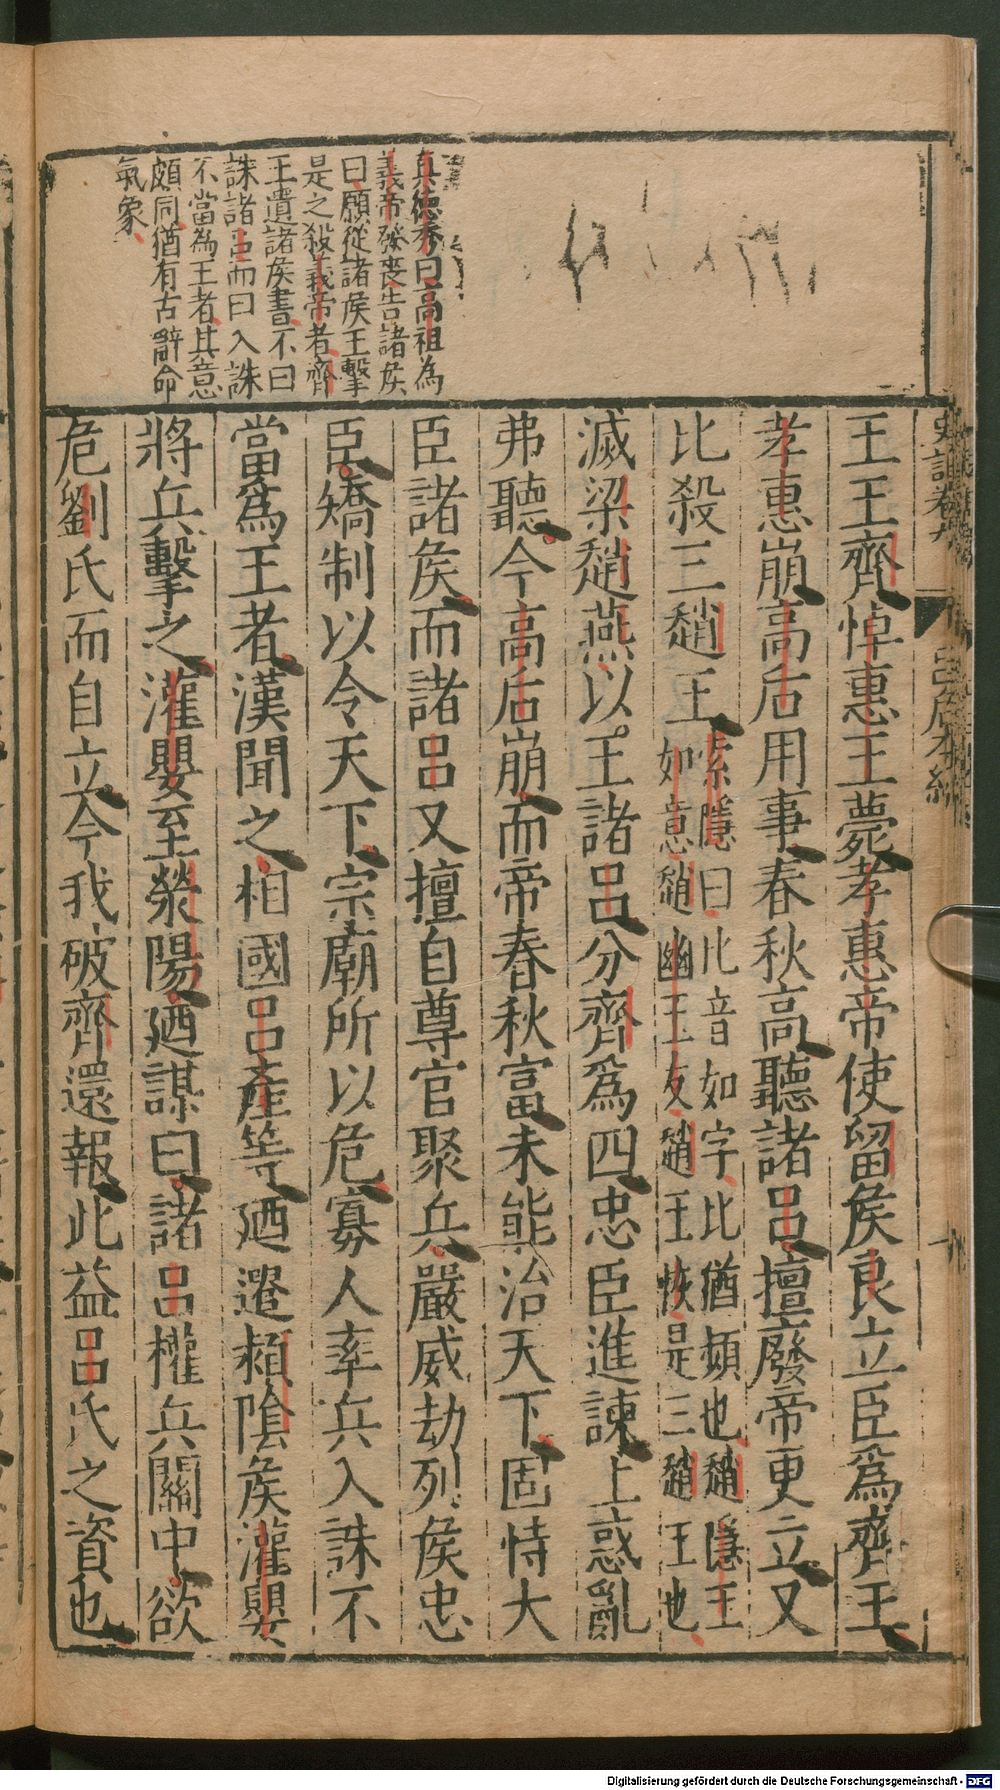 真德秀曰高祖為
義帝發喪告諸侯
曰願從諸侯王擊
是之殺義帝者齊
王遺諸侯書不曰
誅諸呂而曰入誅
不當為王者其意
頗同猶有古辭命
氣象
史記卷九
呂后本紀
九
王王齊悼惠王薨孝惠帝使留侯良立臣爲齊王
孝惠崩高后用事春秋高聽諸呂擅廢帝更立又
比殺三趙王
索隱曰比音如字比猶頻也趙隱王
如意趙幽王友趙王恢是三趙王也
滅梁趙燕以王諸呂分齊爲四忠臣進諫上惑亂
弗聽今高后崩而帝春秋富未能治天下固恃大
臣諸侯而諸呂又擅自尊官聚兵嚴威劫列侯忠
臣矯制以令天下宗廟所以危寡人率兵入誅不
當爲王者漢聞之相國呂產等迺遣潁陰侯灌嬰
將兵擊之灌嬰至滎陽迺謀曰諸呂權兵關中欲
危劉氏而自立今我破齊還報此益呂氏之資也
Digitalisierung gefördert durch die Deutsche Forschungsgemeinschaft - DFG